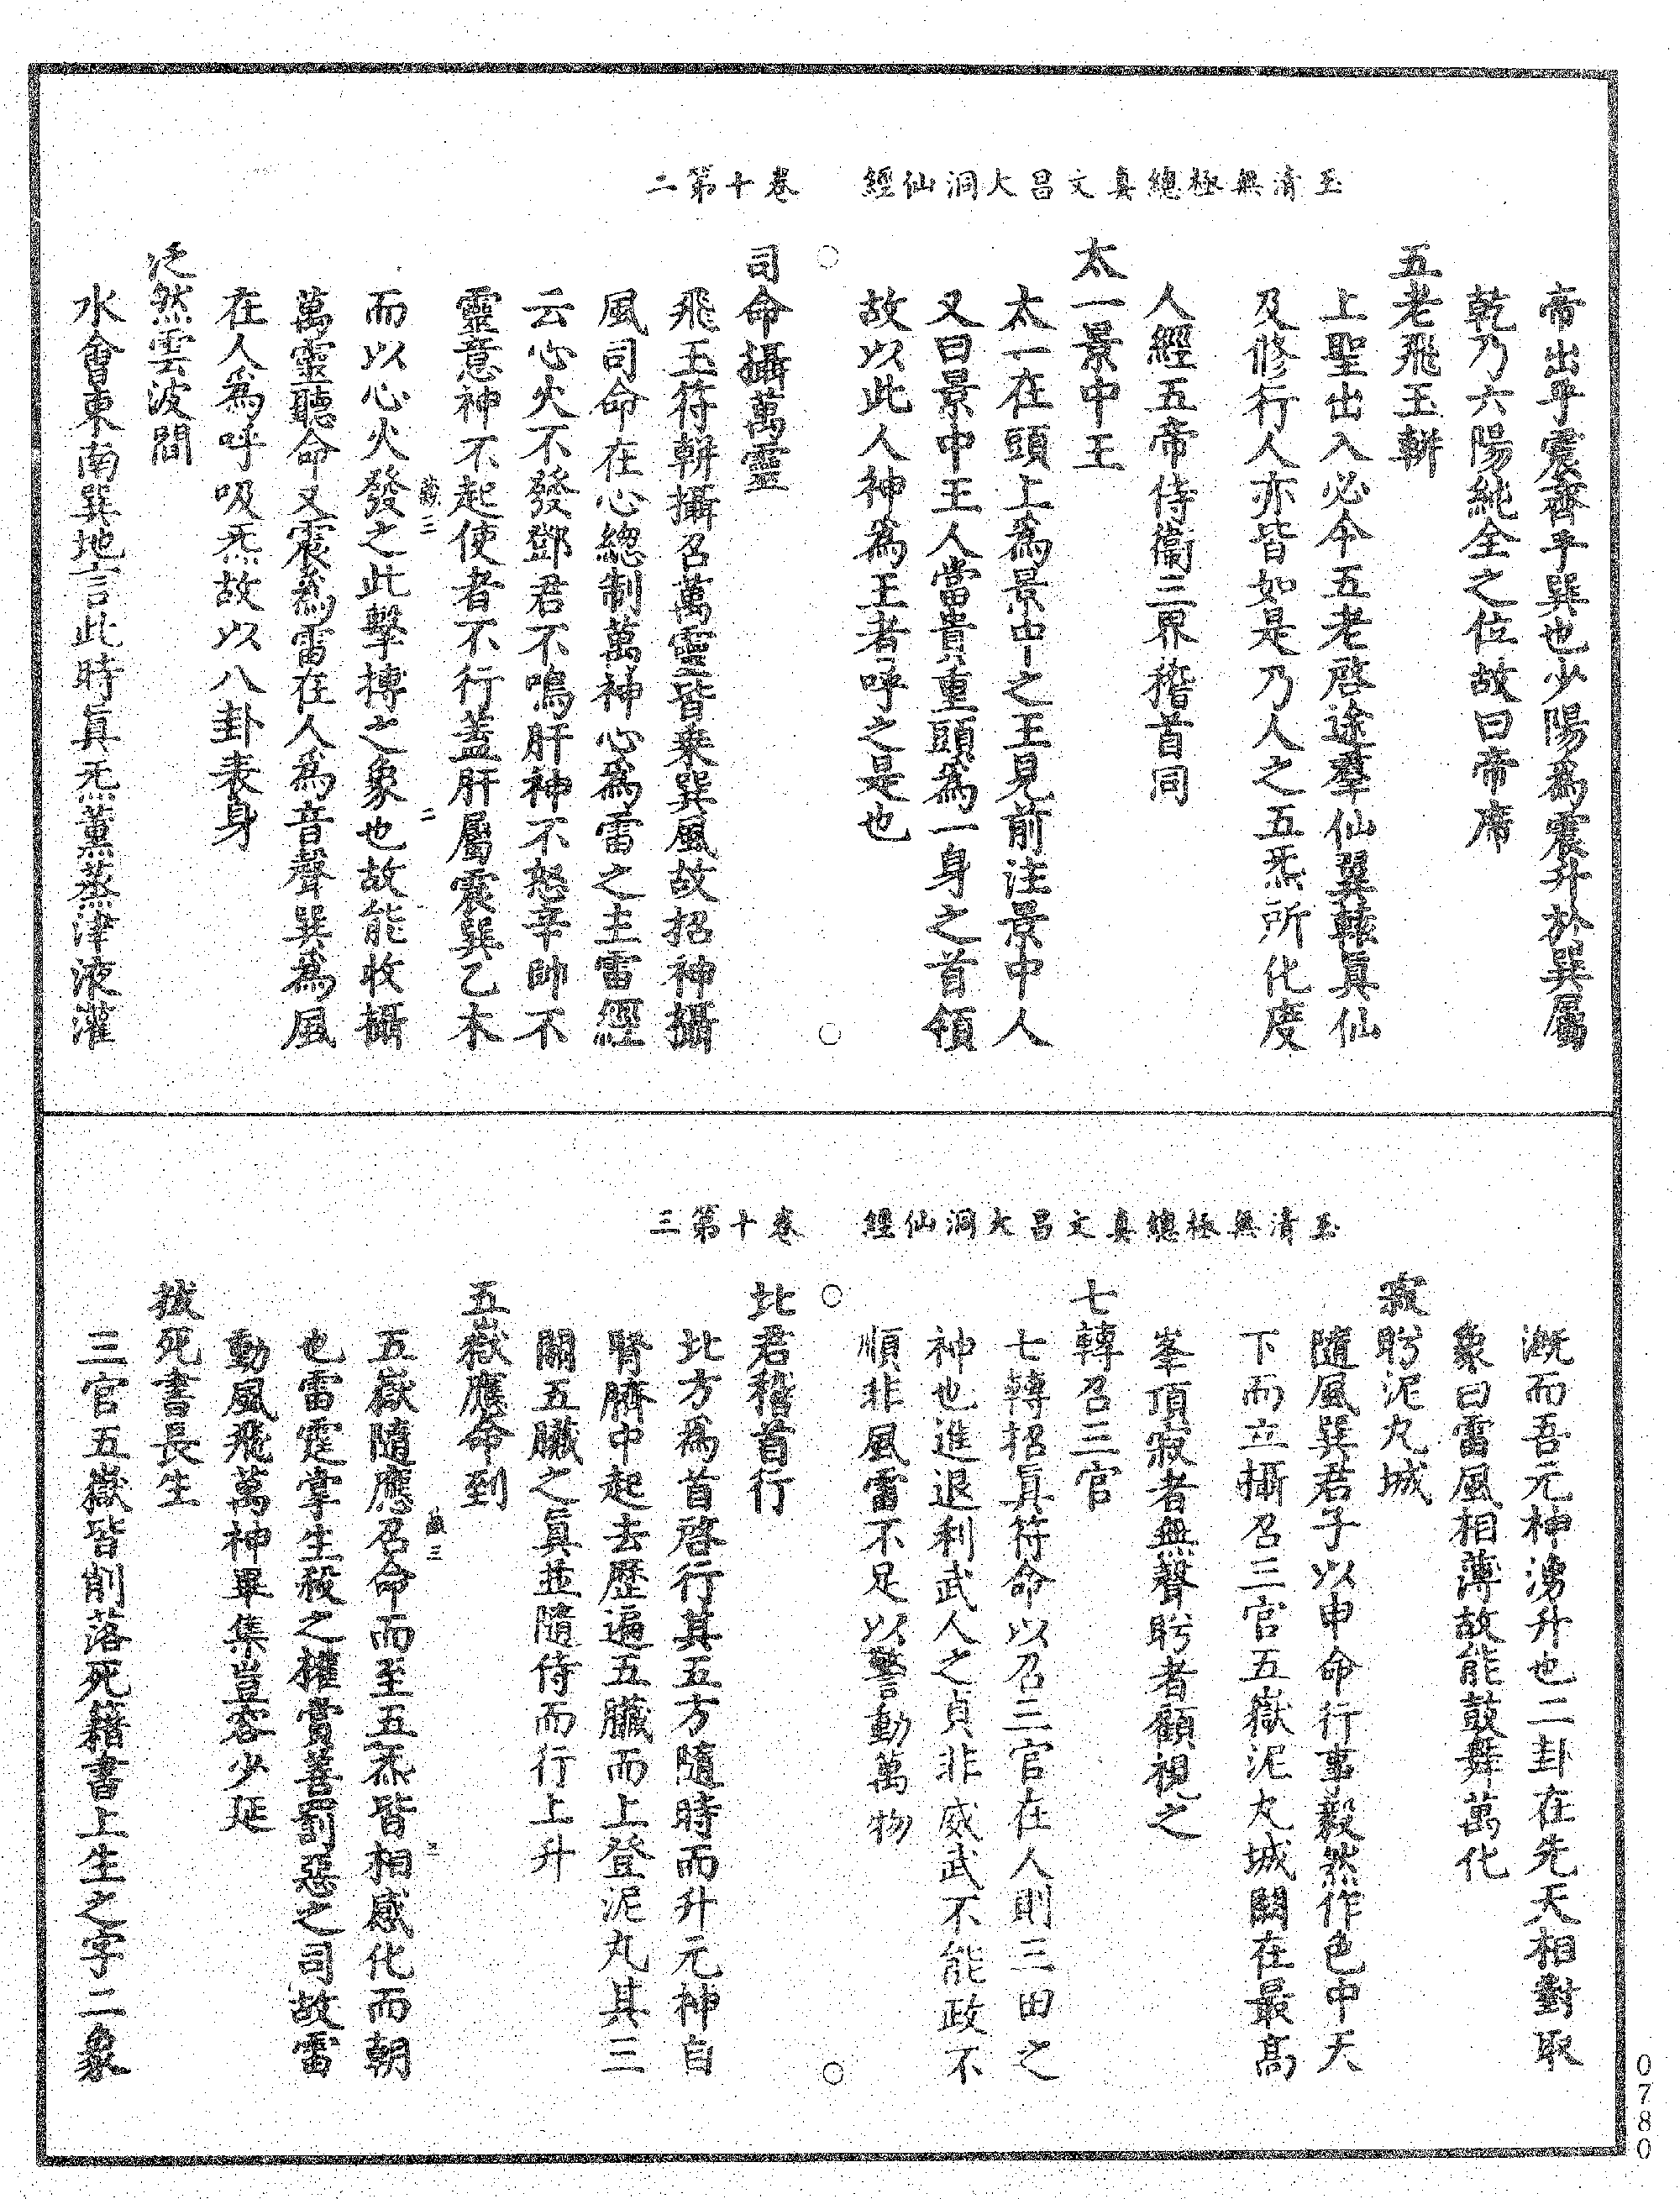 玉清無極總真文昌大洞仙經　卷十第二
帝出乎震齊乎巽也少陽為震升於巽屬
乾乃六陽純全之位故曰帝席
五老飛玉輧
上聖出入必令五老啓途羣仙翼轅真仙
及修行人亦皆如是乃人之五炁所化度
人經五帝侍衛三界稽首同
太一景中王
太一在頭上為景中之王見前注景中人
又曰景中王人當貴重頭為一身之首領
故以此人神為王者呼之是也
司命攝萬靈
飛玉符輧攝召萬靈皆乘巽風故招神攝
風司命在心總制萬神心為雷之主雷經
云心火不發鄧君不鳴肝神不怒辛帥不
靈意神不起使者不行蓋肝屬震巽乙木
而以心火發之此擊搏之象也故能收攝
萬靈聽命又震為雷在人為音聲巽為風
在人為呼吸炁故以八卦表身
泛然雲波間
水會東南巽地言此時真炁薰蒸津液灌
玉清無極總真文昌大洞仙經　卷十第三
溉而吾元神湧升也二卦在先天相對取
象曰雷風相薄故能鼓舞萬化
寂眄泥丸城
隨風巽君子以申命行事毅然作色中天
下而立攝召三官五嶽泥丸城闕在最高
峯頂寂者無聲眄者顧視之
七轉召三官
七轉招真符命以召三官在人則三田之
神也進退利武人之貞非威武不能政不
順非風雷不足以警動萬物
北君稽首行
北方為首啓行其五方隨時而升元神自
腎臍中起去歷遍五臟而上登泥丸其三
關五臟之真並隨侍而行上升
五嶽應命到
五嶽隨應召命而至五炁皆相感化而朝
也雷霆掌生殺之權賞善罰惡之司故雷
動風飛萬神畢集豈容少延
拔死書長生
三官五嶽皆削落死籍書上生之字二象
0780